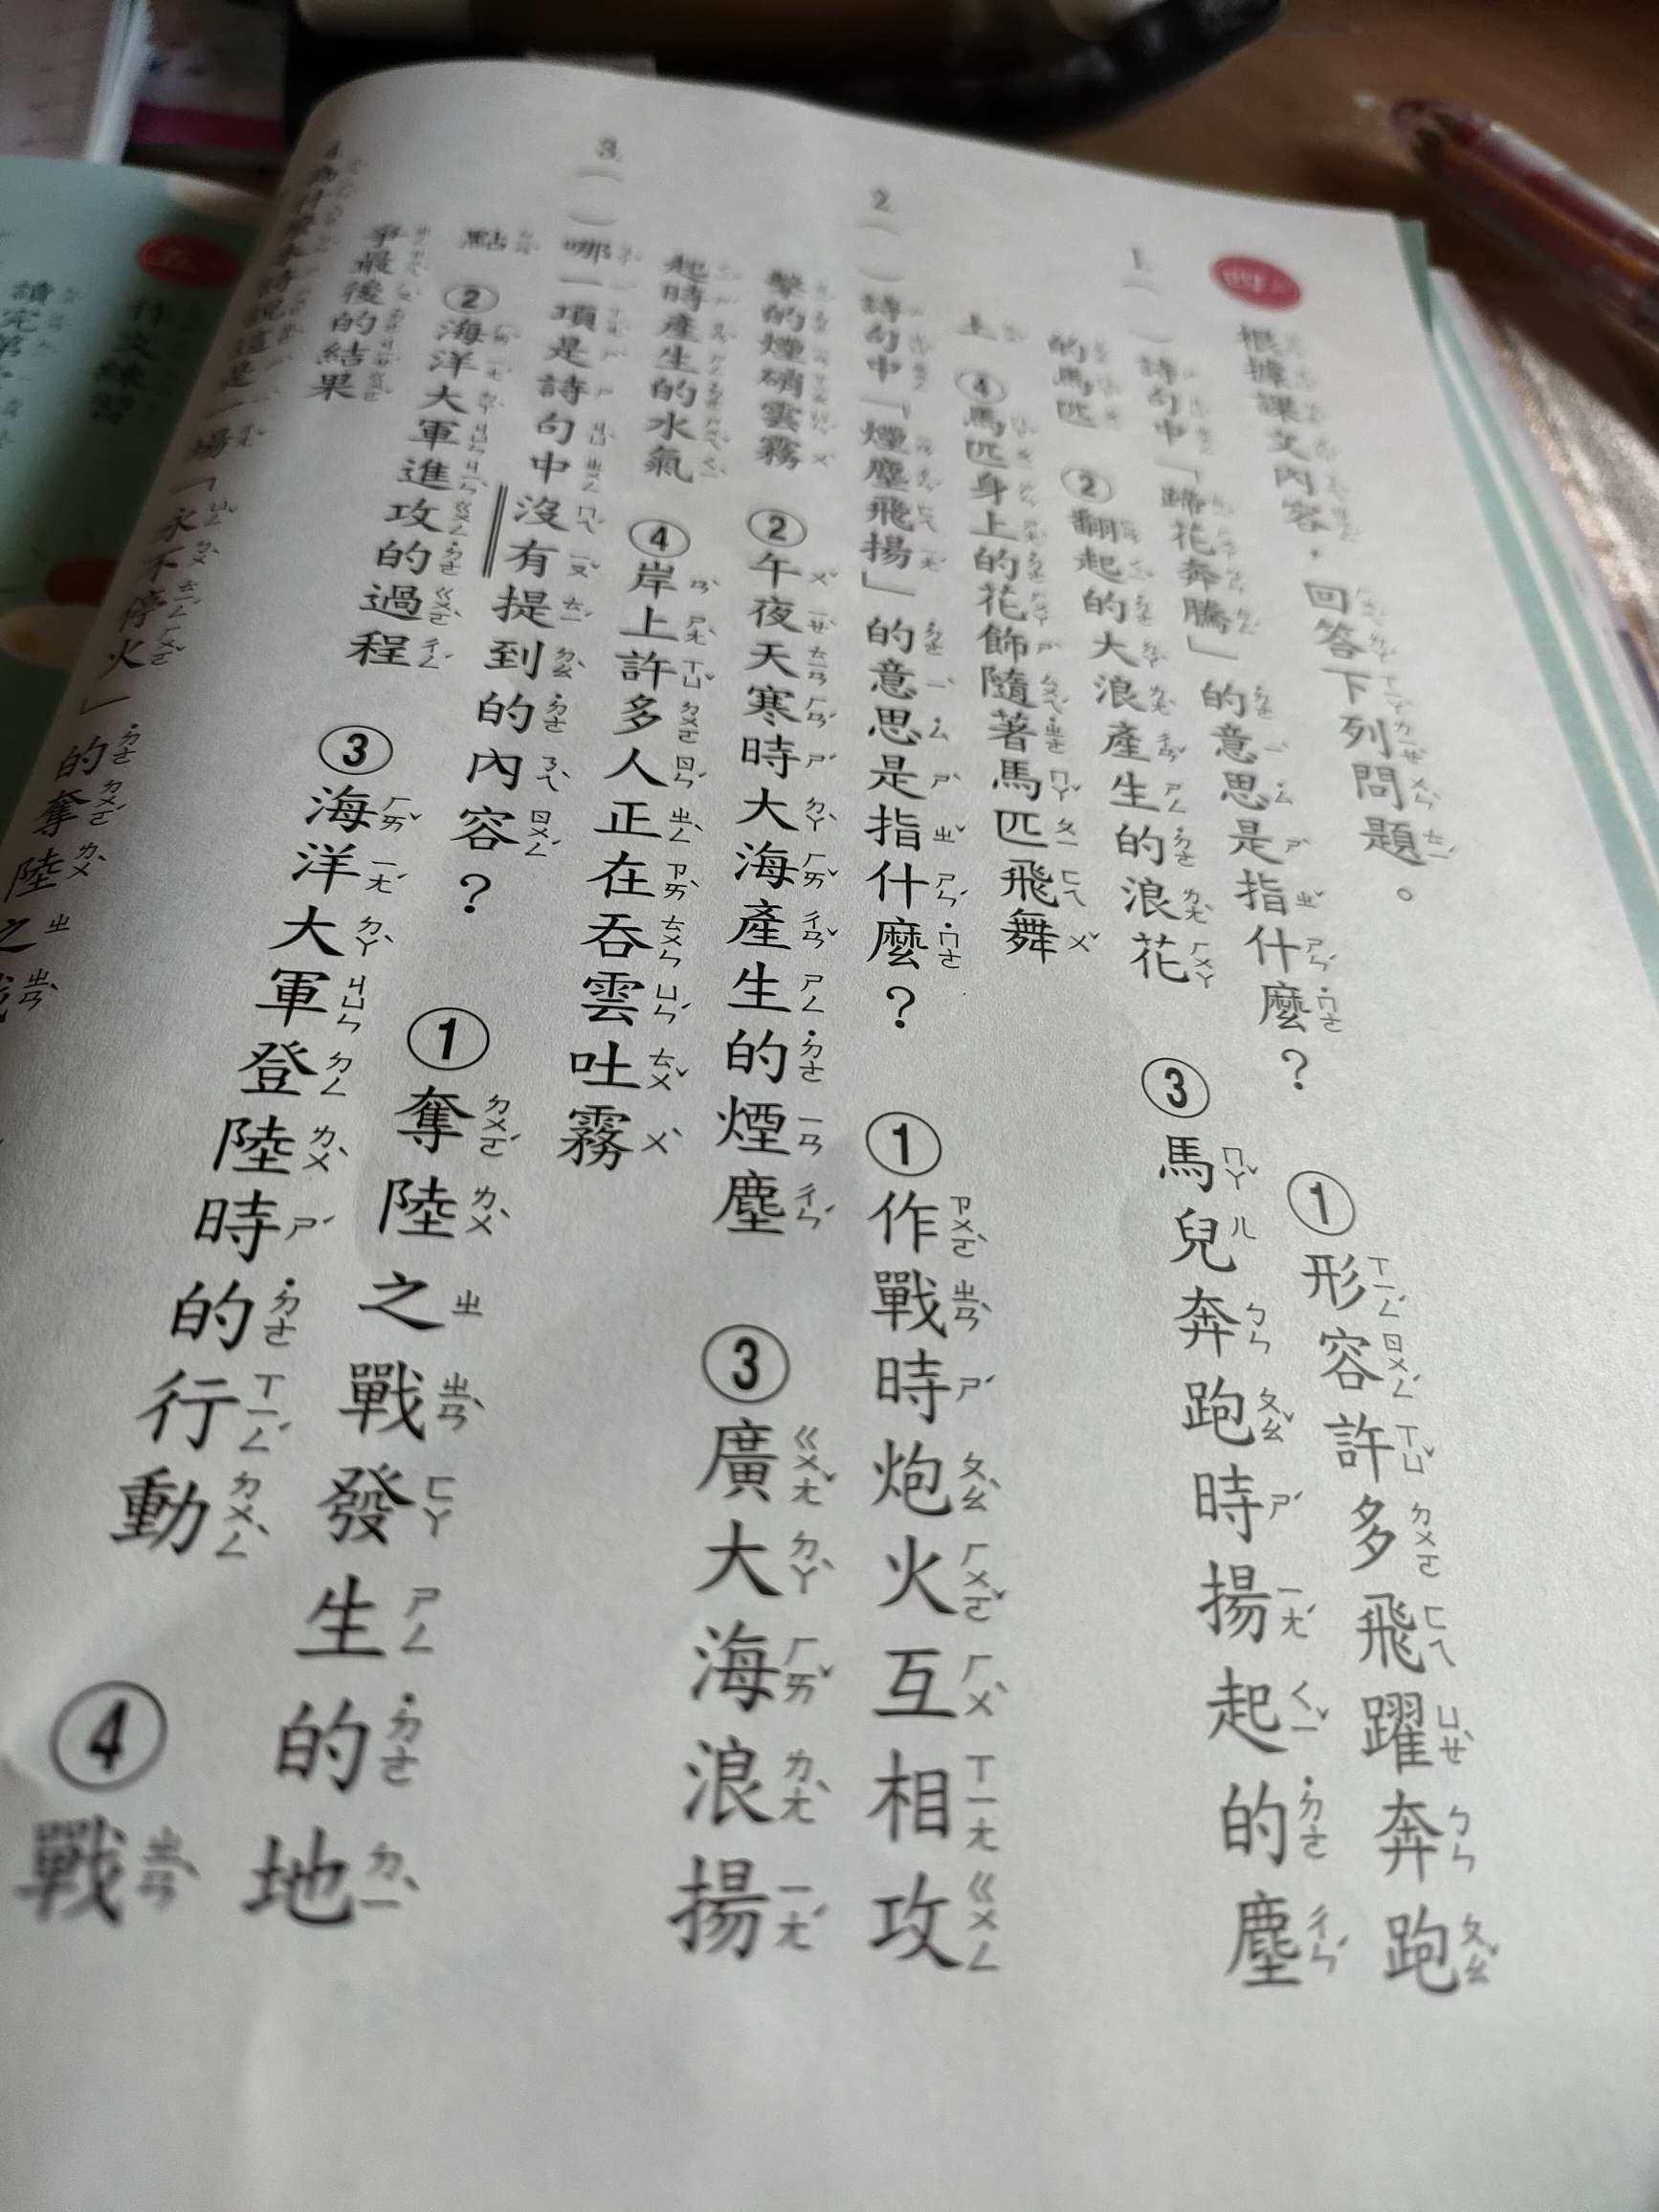 四、根據課文內容，回答下列問題。
1.（　）詩句中「蹄花奔騰」的意思是指什麼？　①形容許多飛躍奔跑
的馬匹　②翻起的大浪產生的浪花　③馬兒奔跑時揚起的塵
土　④馬匹身上的花飾隨著馬匹飛舞
2.（　）詩句中「煙塵飛揚」的意思是指什麼？　①作戰時炮火互相攻
擊的煙硝雲霧　②午夜天寒時大海產生的煙塵　③廣大海浪揚
起時產生的水氣　④岸上許多人正在吞雲吐霧
3.（　）哪一項是詩句中沒有提到的內容？　①奪陸之戰發生的地
點　②海洋大軍進攻的過程　③海洋大軍登陸時的行動　④戰
爭最後的結果
4.為什麼本詩說這是一場「永不停火」的奪陸之戰
五、作文練習
讀完第